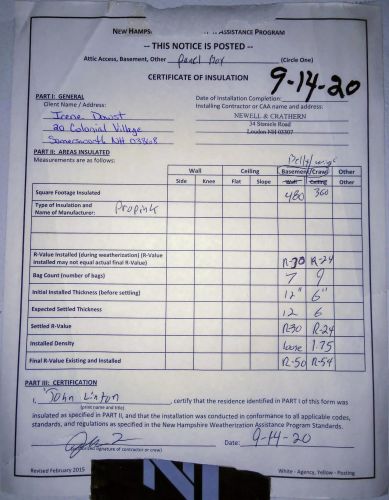 NEW HAMPS ASSISTANCE PROGRAM
-- THIS NOTICE IS POSTED --
Attic Access, Basement, Other Panel Box (Circle One)
CERTIFICATE OF INSULATION
9-14-20
PART I: GENERAL
Client Name / Address:
Date of Installation Completion:
Installing Contractor or CAA name and address:
Irene Doust
20 Colonial Village
Somersworth NH 03868
NEWELL & CRATHERN
34 Staniels Road
Loudon NH 03307
PART II: AREAS INSULATED
Measurements are as follows:
Belly/wings
Wall Ceiling Basement/Crawl Other
Side Knee Flat Slope Wall Ceiling Other
Square Footage Insulated 480 360
Type of Insulation and
Name of Manufacturer: Propink
R-Value Installed (during weatherization) (R-Value
installed may not equal actual final R-Value) R-30 R-24
Bag Count (number of bags) 7 9
Initial Installed Thickness (before settling) 12" 6"
Expected Settled Thickness 12 6
Settled R-Value R30 R-24
Installed Density loose 1.75
Final R-Value Existing and Installed R-50 R-54
PART III: CERTIFICATION
I, John Linton, certify that the residence identified in PART I of this form was
(print name and title)
insulated as specified in PART II, and that the installation was conducted in conformance to all applicable codes,
standards, and regulations as specified in the New Hampshire Weatherization Assistance Program Standards.
Date: 9-14-20
signature of contractor or crew)
Revised February 2015
White - Agency, Yellow - Posting